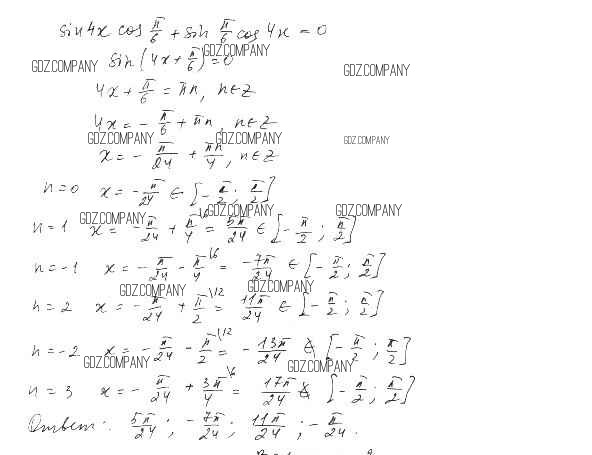 sin 4x cos π/6 + sin π/6 cos 4x = 0
GDZ.COMPANY
sin(4x + π/6) = 0
GDZ.COMPANY
GDZ.COMPANY
4x + π/6 = πn, n∈Z
4x = -π/6 + πn, n∈Z
GDZ.COMPANY GDZ.COMPANY GDZ.COMPANY
x = -π/24 + πn/4, n∈Z
n=0 x = -π/24 ∈ [-π/2; π/2]
GDZ.COMPANY GDZ.COMPANY GDZ.COMPANY
n=1 x = -π/24 + π/4 \6 = 5π/24 ∈ [-π/2; π/2]
n=-1 x = -π/24 - π/4 \6 = -7π/24 ∈ [-π/2; π/2]
GDZ.COMPANY GDZ.COMPANY
n=2 x = -π/24 + π/2 \12 = 11π/24 ∈ [-π/2; π/2]
n=-2 x = -π/24 - π/2 \12 = -13π/24 ∉ [-π/2; π/2]
GDZ.COMPANY GDZ.COMPANY
n=3 x = -π/24 + 3π/4 \6 = 17π/24 ∉ [-π/2; π/2]
Ответ: 5π/24; -7π/24; 11π/24; -π/24.